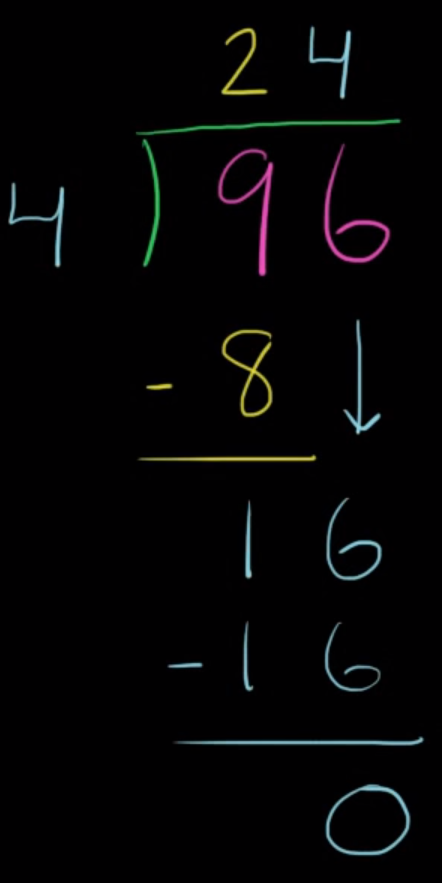 24
4)96
-8↓
16
-16
0